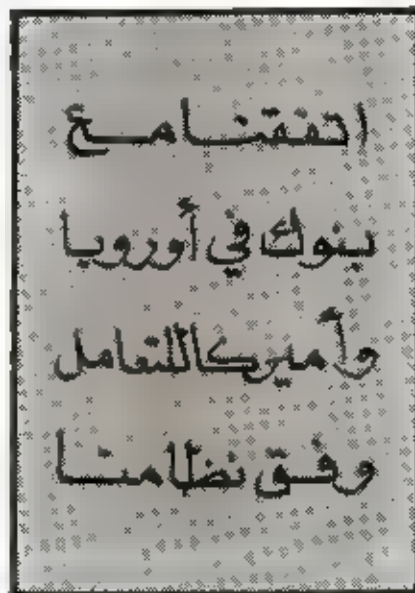 اتفقنا مع
بنوك في أوروبا
وأميركا للتعامل
وفق نظامنا